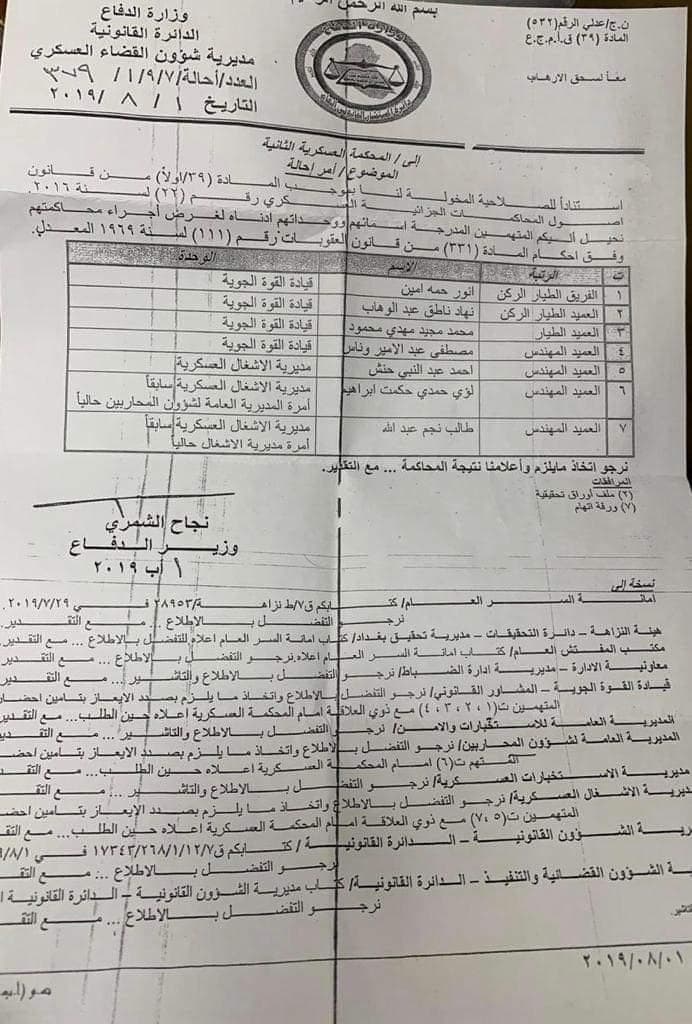 بسم الله الرحمن الرحيم
ن.ج/عدلي الرقم(٥٣٢)
المادة (٣٩) ق.أ.م.ج.ع
معاً لسحق الارهاب
وزارة الدفاع
الدائرة القانونية
مديرية شؤون القضاء العسكري
العدد/أحالة/١/٩/٧/ ٣٧٩
التاريخ ١ / ٨ /٢٠١٩
إلى / المحكمة العسكرية الثانية
الموضوع / أمر إحالة
استناداً للصلاحية المخولة لنا بموجب المادة (٣٩/اولاً) من قانون
اصول المحاكمات الجزائية العسكري رقم (٢٢) لسنة ٢٠١٦.
نحيل أليكم المتهمين المدرجة اسمائهم ووحداتهم ادناه لغرض أجراء محاكمتهم
وفق احكام المادة (٣٣١) من قانون العقوبات رقم (١١١) لسنة ١٩٦٩ المعدل.
ت الرتبة الاسم الوحدة
١ الفريق الطيار الركن انور حمه امين قيادة القوة الجوية
٢ العميد الطيار الركن نهاد ناطق عبد الوهاب قيادة القوة الجوية
٣ العميد الطيار محمد مجيد مهدي محمود قيادة القوة الجوية
٤ العميد المهندس مصطفى عبد الامير وناس قيادة القوة الجوية
٥ العميد المهندس احمد عبد النبي حنش مديرية الاشغال العسكرية
٦ العميد المهندس لؤي حمدي حكمت ابراهيم مديرية الاشغال العسكرية سابقاً
أمرة المديرية العامة لشؤون المحاربين حالياً
٧ العميد المهندس طالب نجم عبد الله مديرية الاشغال العسكرية سابقاً
أمرة مديرية الاشغال حالياً
نرجو اتخاذ مايلزم وأعلامنا نتيجة المحاكمة ... مع التقدير.
المرافقات
(٢) ملف أوراق تحقيقية
(٧) ورقة اتهام
نجاح الشمري
وزير الدفاع
١ أب ٢٠١٩
نسخة إلى
امانة السر العام/ كتابكم ق٧/ط نزاهة/٢٨٩٥٣ في ٢٠١٩/٧/٢٩.
نرجو التفضل بالاطلاع ... مع التقدير.
هيئة النزاهة – دائرة التحقيقات – مديرية تحقيق بغداد/ كتاب امانة السر العام اعلاه للتفضل بالاطلاع ... مع التقدير
مكتب المفتش العام/ كتاب امانة السر العام اعلاه نرجو التفضل بالاطلاع ... مع التقدير.
معاونية الادارة – مديرية ادارة الضباط/ نرجو التفضل بالاطلاع والتأشير ... مع التقدير
قيادة القوة الجوية – المشاور القانوني/ نرجو التفضل بالاطلاع واتخاذ ما يلزم بصدد الايعاز بتأمين احضار
المتهمين ت(١، ٢، ٣، ٤) مع ذوي العلاقة امام المحكمة العسكرية اعلاه حين الطلب... مع التقدير
المديرية العامة للاستخبارات والامن/ نرجو التفضل بالاطلاع والتأشير ... مع التقدير
المديرية العامة لشؤون المحاربين/ نرجو التفضل بالاطلاع واتخاذ ما يلزم بصدد الايعاز بتأمين احض
المتهم ت(٦) امام المحكمة العسكرية اعلاه حين الطلب... مع التقدير
مديرية الاستخبارات العسكرية/ نرجو التفضل بالاطلاع والتأشير ... مع التقد
مديرية الاشغال العسكرية/ نرجو التفضل بالاطلاع واتخاذ ما يلزم بصدد الايعاز بتأمين احض
المتهمين ت(٥، ٧) مع ذوي العلاقة امام المحكمة العسكرية اعلاه حين الطلب... مع التق
رية الشؤون القانونية – الدائرة القانونية / كتابكم ق٧/١٢/١/٢٦٨/١٧٣٤٣ في ٩/٨/١
نرجو التفضل بالاطلاع ... مع التقد
ية الشؤون القضائية والتنفيذ – الدائرة القانونية/ كتاب مديرية الشؤون القانونية – الدائرة القانونية ا
نرجو التفضل بالاطلاع ... مع التقد
التأشير.
٢٠١٩/٠٨/٠١